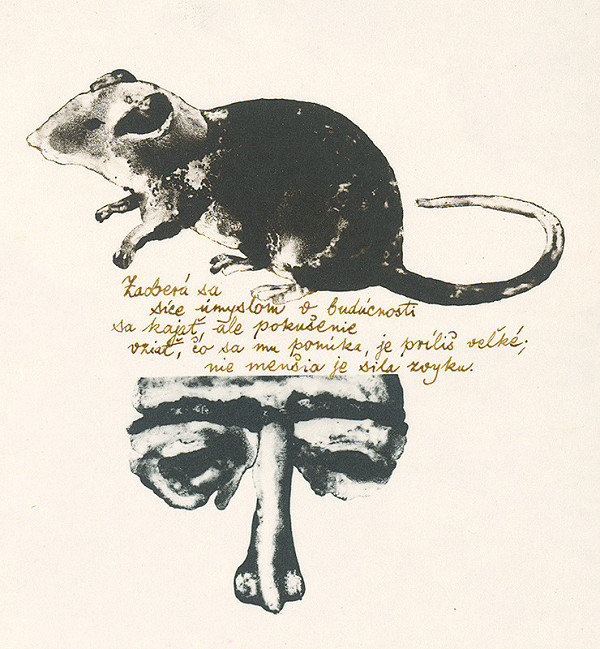 Zaoberá sa
síce úmyslom v budúcnosti
sa kajať, ale pokušenie
vziať, čo sa mu ponúka, je príliš veľké;
nie menšia je sila zvyku.